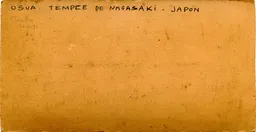 OSUA. TEMPLE DE NAGASAKI. JAPON